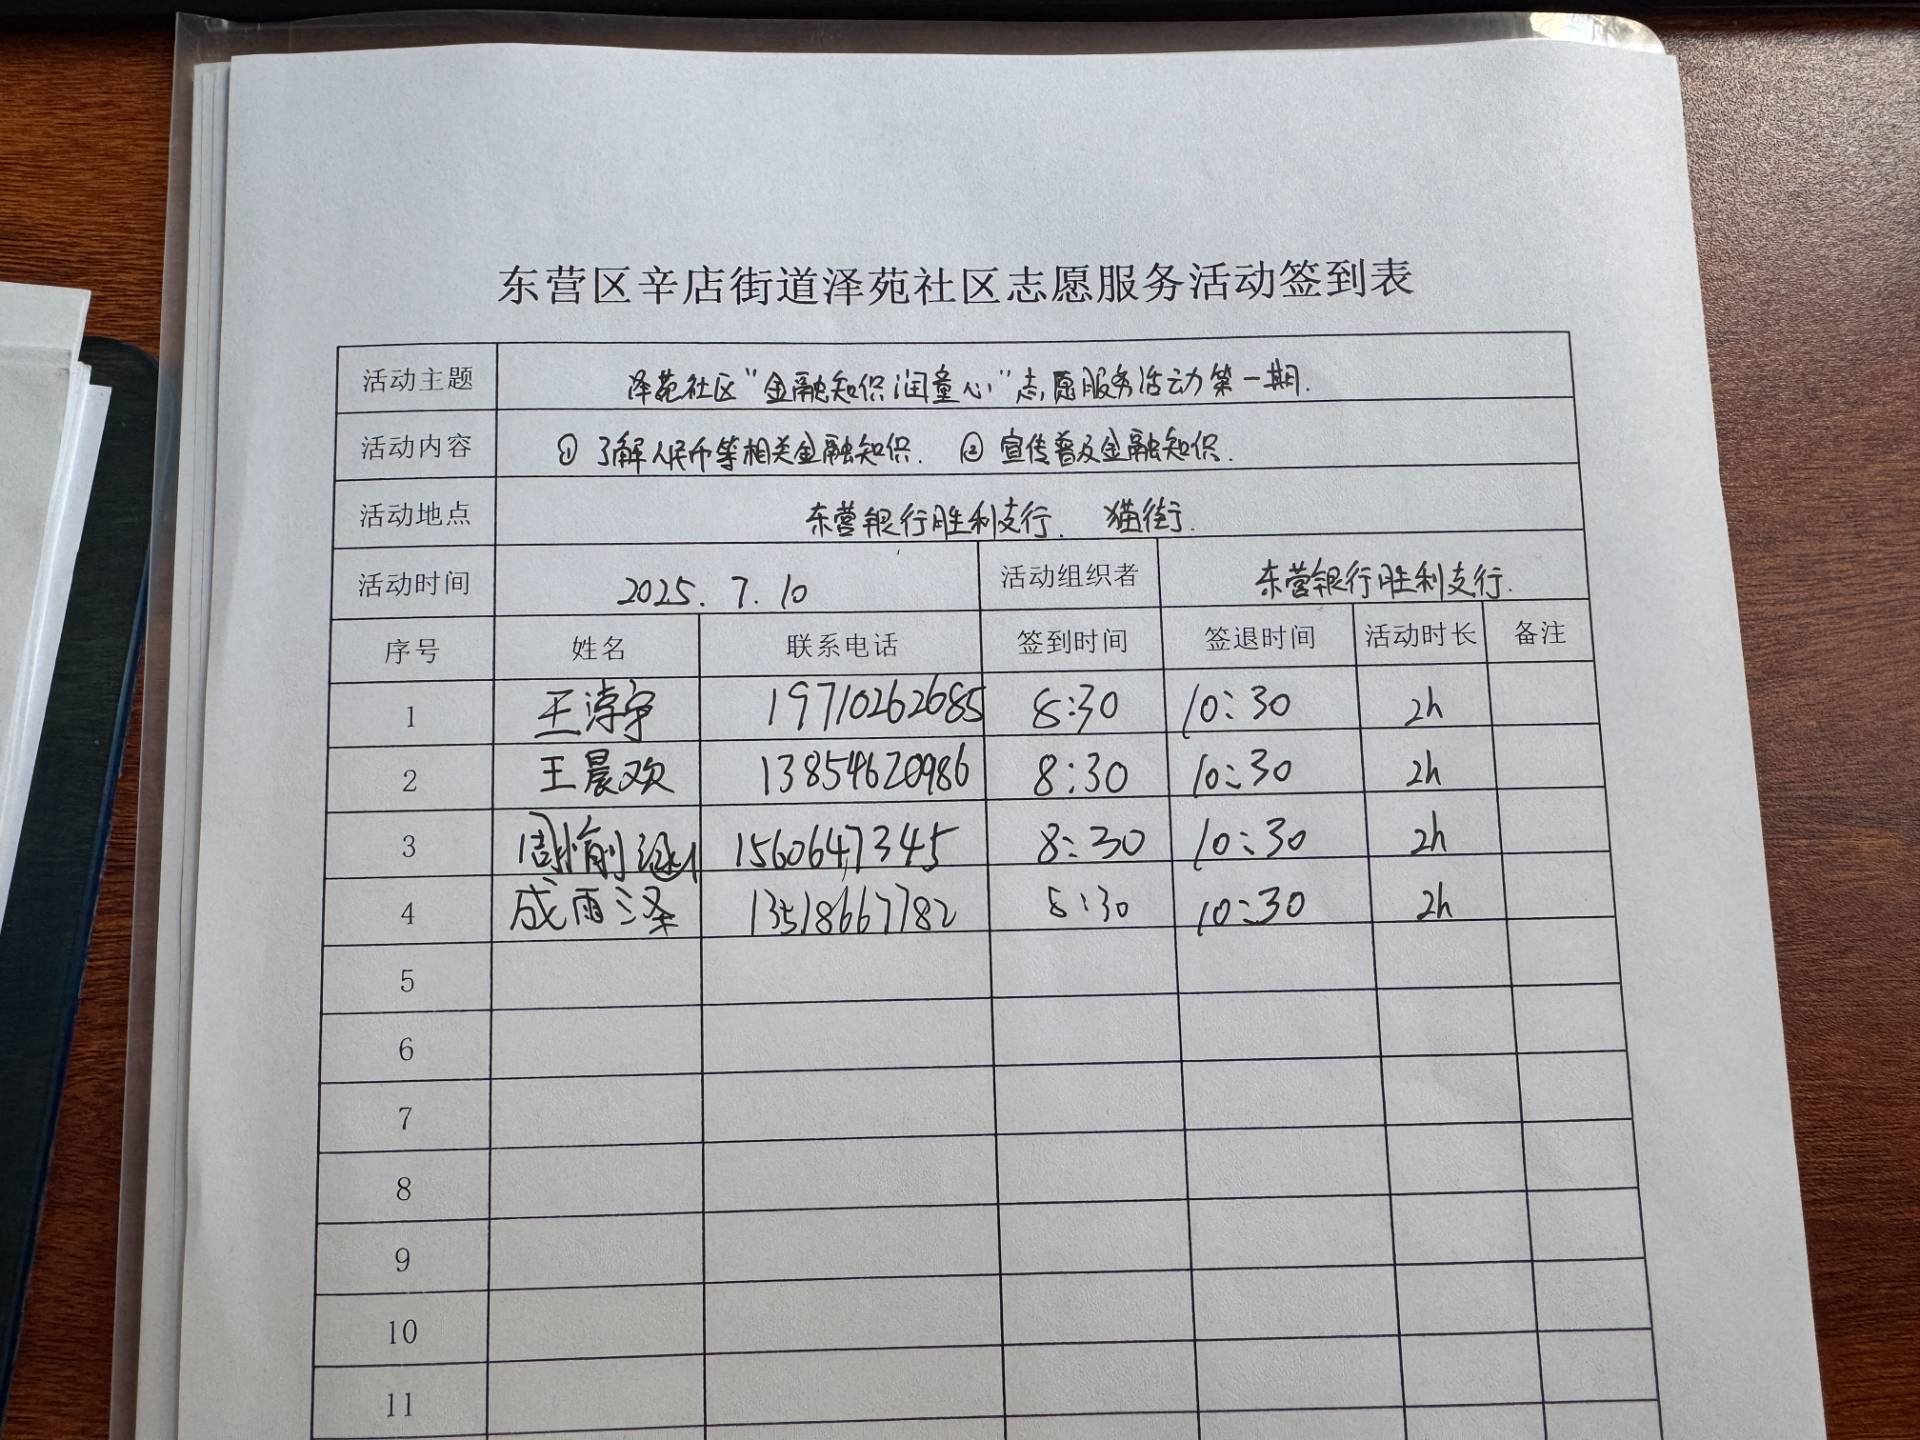 东营区辛店街道泽苑社区志愿服务活动签到表
活动主题 泽苑社区“金融知识润童心”志愿服务活动第一期.
活动内容 ① 了解人民币等相关金融知识. ② 宣传普及金融知识.
活动地点 东营银行胜利支行. 猫街.
活动时间 2025.7.10 活动组织者 东营银行胜利支行.
序号 姓名 联系电话 签到时间 签退时间 活动时长 备注
1 王淳宇 19710262685 8:30 10:30 2h
2 王晨欢 13854620986 8:30 10:30 2h
3 周愉涵 1560647345 8:30 10:30 2h
4 成雨泽 13518667782 8:30 10:30 2h
5
6
7
8
9
10
11